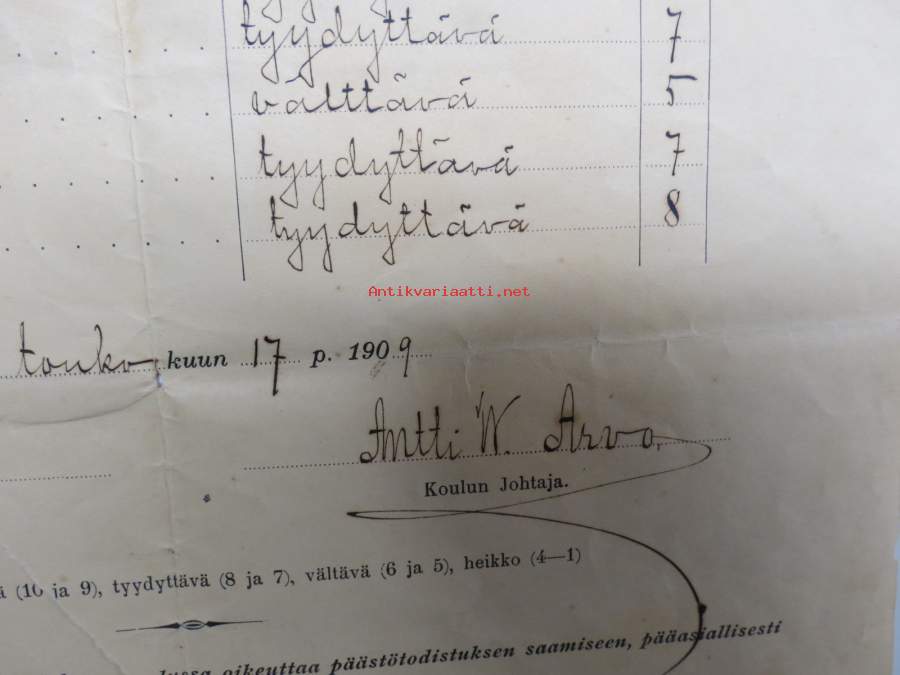 tyydyttävä 7
välttävä 5
tyydyttävä 7
tyydyttävä 8
Antikvariaatti.net
touko kuun 17 p. 1909
Antti W. Arvo.
Koulun Johtaja.
(10 ja 9), tyydyttävä (8 ja 7), vältävä (6 ja 5), heikko (4—1)
oikeuttaa päästötodistuksen saamiseen, pääasiallisesti